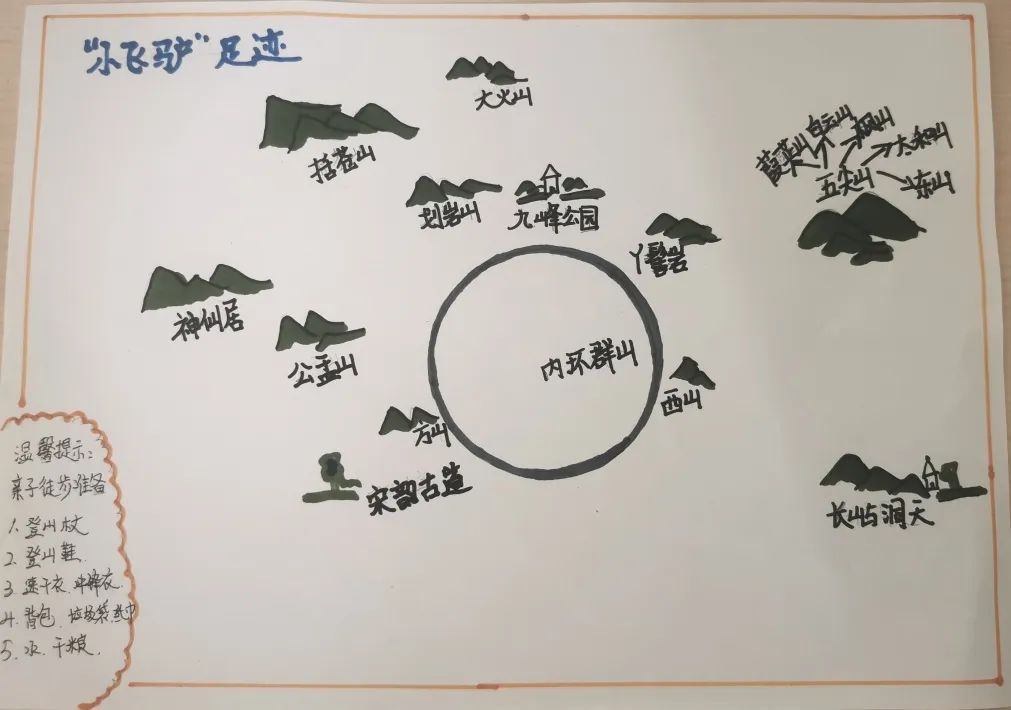 “小飞驴”足迹
大火山
括苍山
划岩山
九峰公园
丫髻岩
白云山
枫山
太和山
五尖山
东山
神仙居
公盂山
内环群山
西山
方山
宋韵古道
长屿洞天
温馨提示:
亲子徒步准备
1.登山杖
2.登山鞋.
3.速干衣.冲锋衣.
4.背包.垃圾袋.纸巾
5.水.干粮.